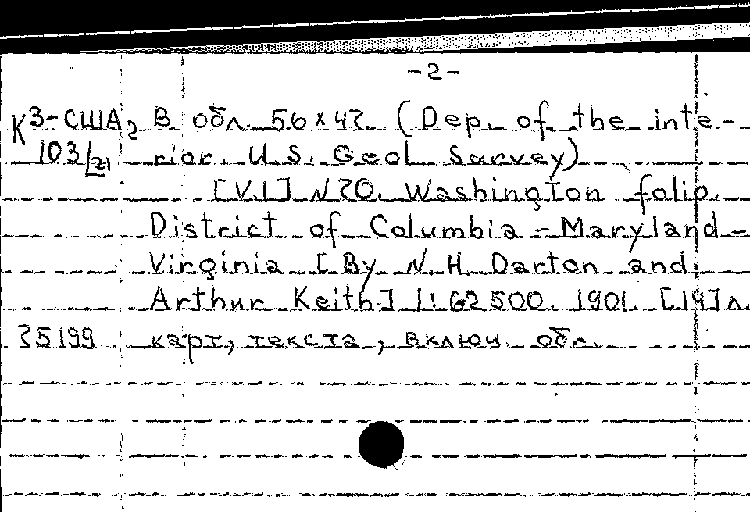 -2-
К 3-США₂ В обл. 56×47. (Dep. of the inte-
103/21 rior. U.S. Geol. Survey)
[V.I] N 70. Washington folio.
District of Columbia - Maryland -
Virginia [By N. H. Darton and
Arthur Keith] 1:62500. 1901. [19] л.
35199 карт, текста, включ. обл.